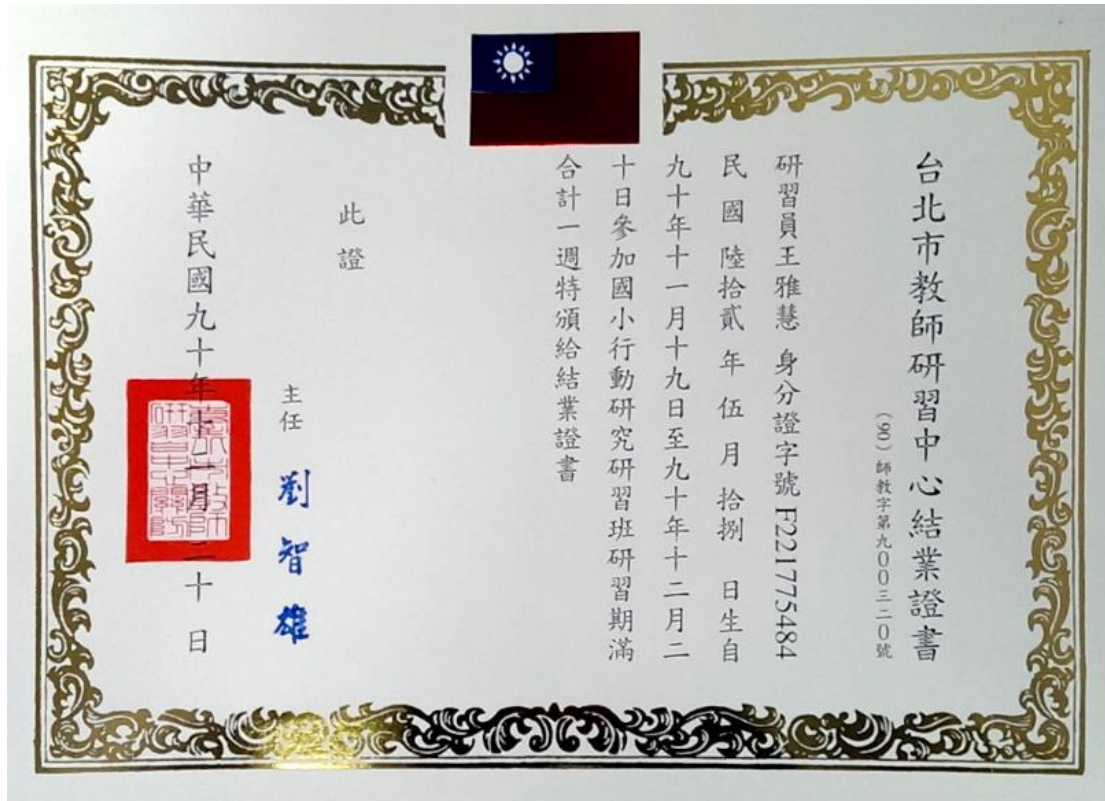 台北市教師研習中心結業證書
（90）師教字第九００三二０號
研習員王雅慧 身分證字號 F221775484
民國陸拾貳年伍月拾捌日生自
九十年十一月十九日至九十年十二月二
十日參加國小行動研究研習班研習期滿
合計一週特頒給結業證書
此證
主任 劉智雄
中華民國九十年十二月二十日